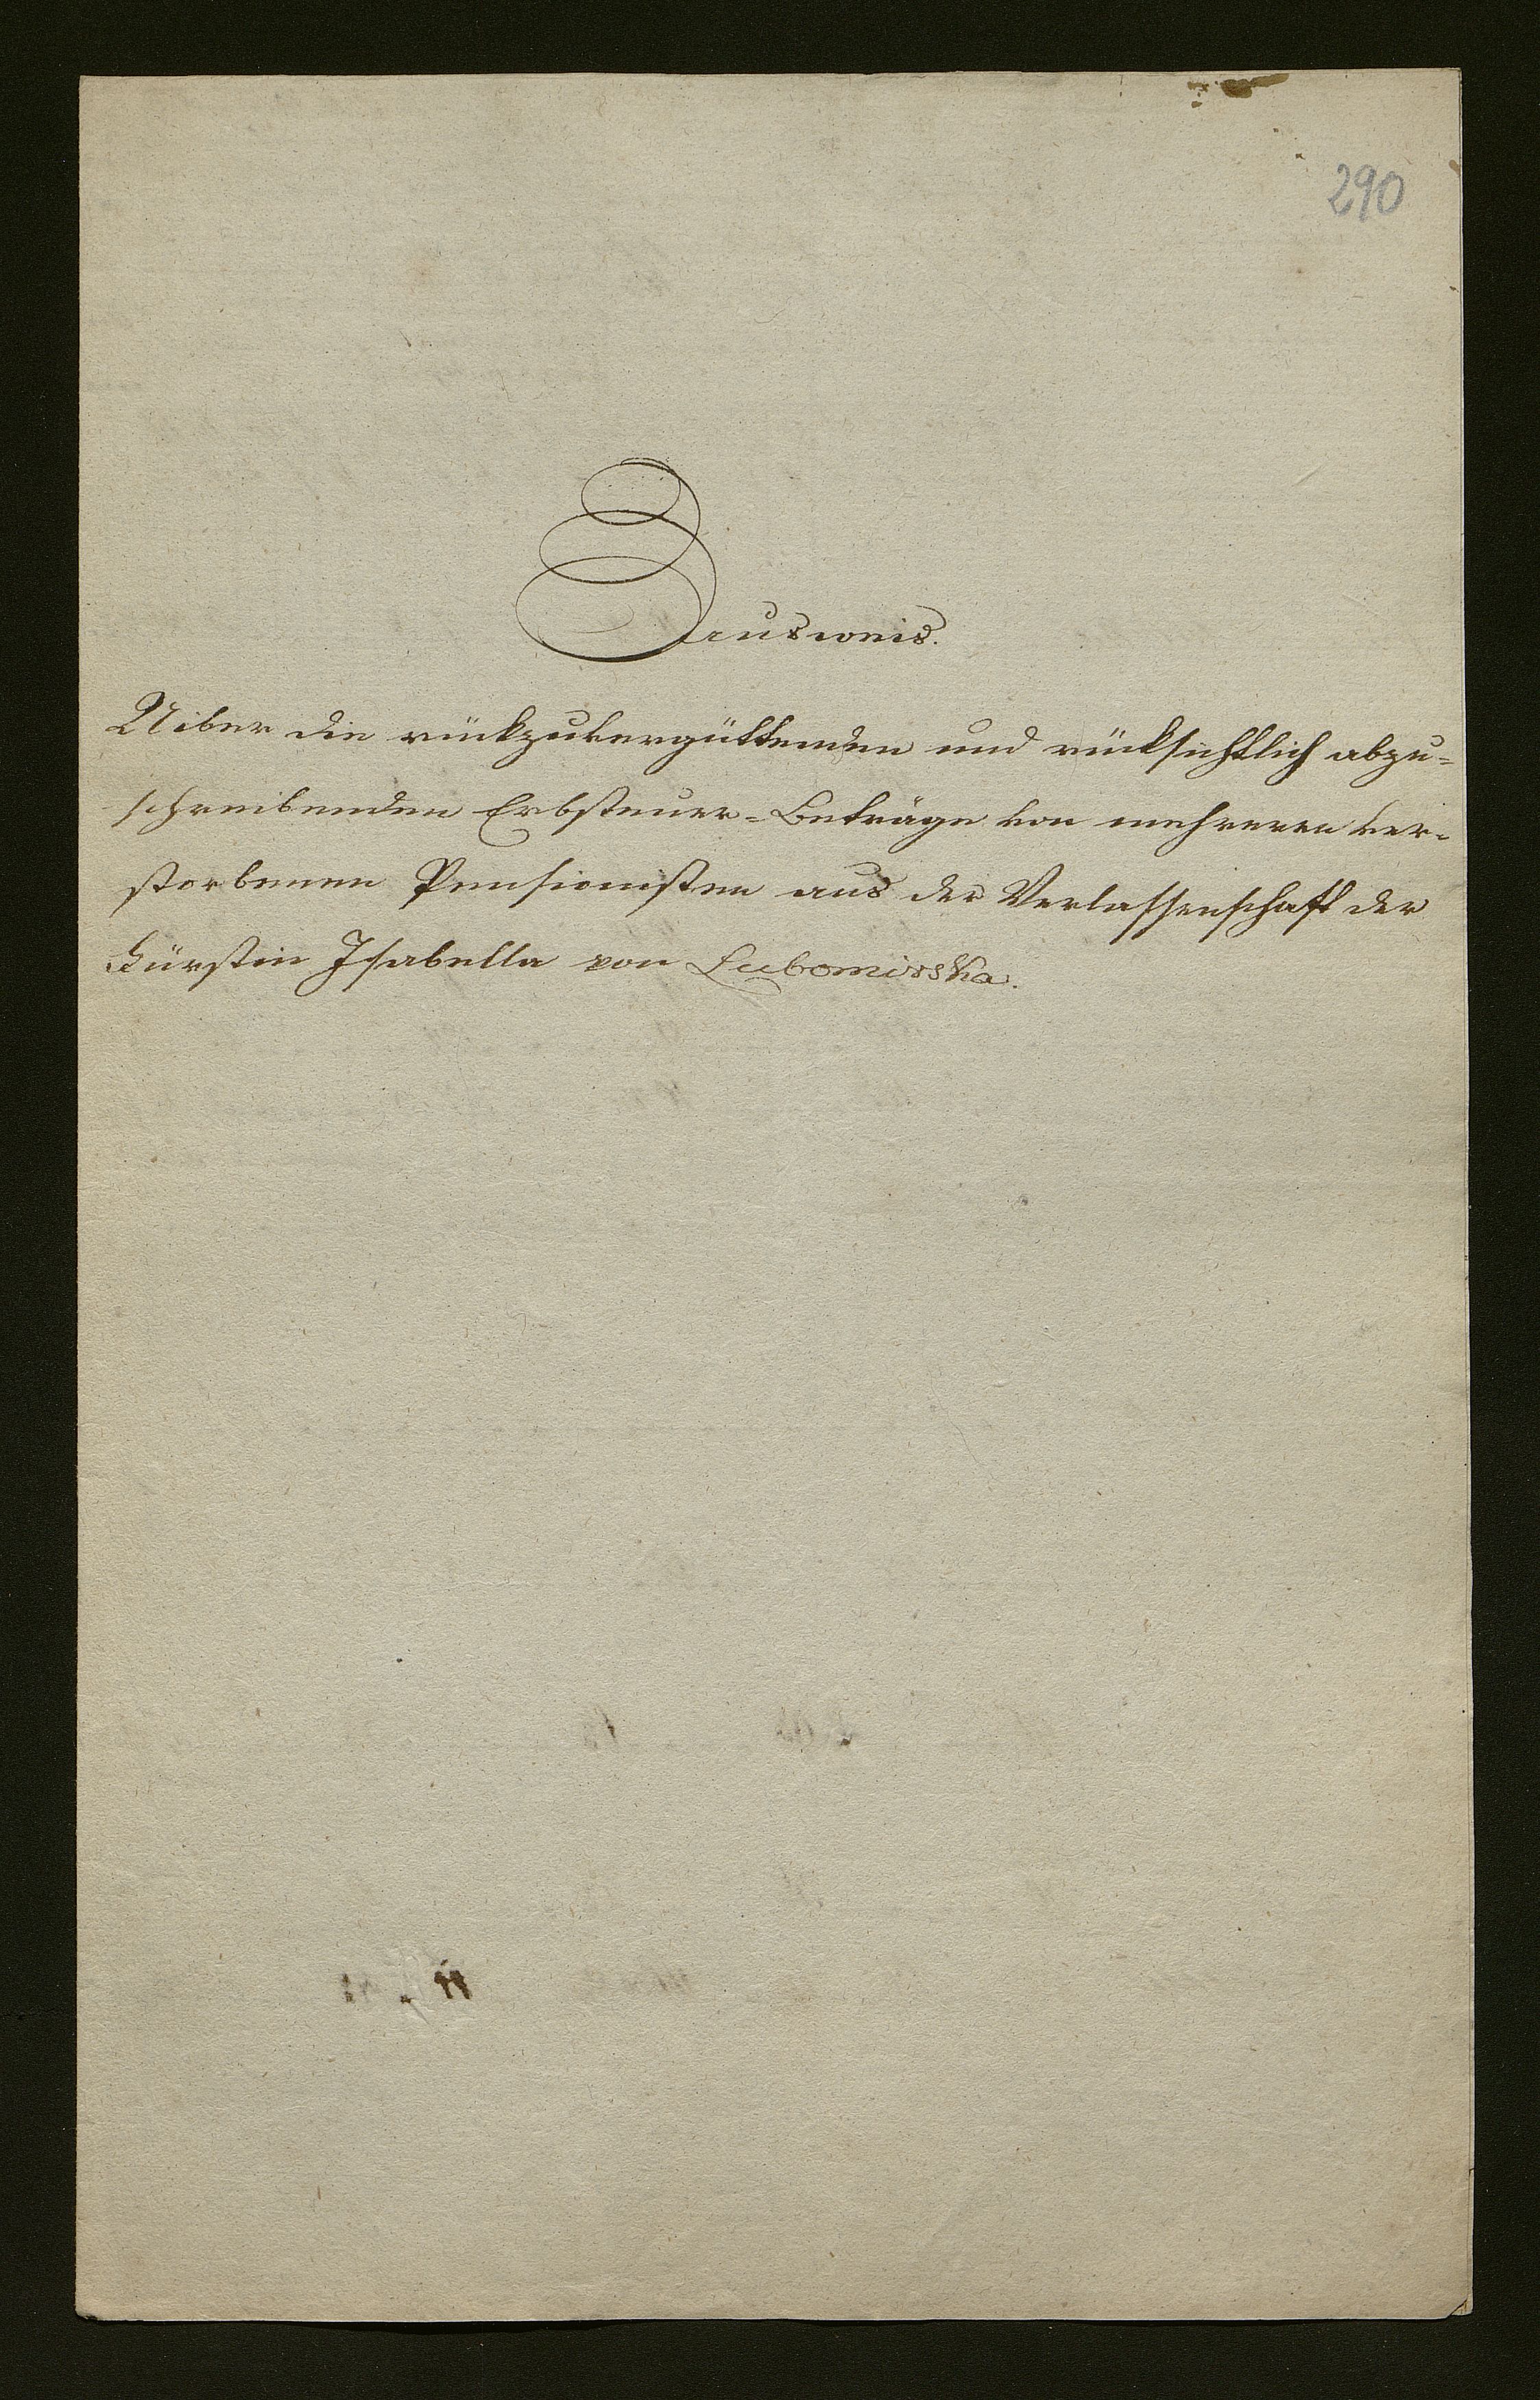 290
Ausweis.
Uiber die rückzuvergüttenden und rücksichtlich abzu=
schreibenden Erbsteuer=Beträge von mehreren ver=
storbenen Pensionisten aus der Verlassenschaft der
Fürstin Isabella von Lubomirska.